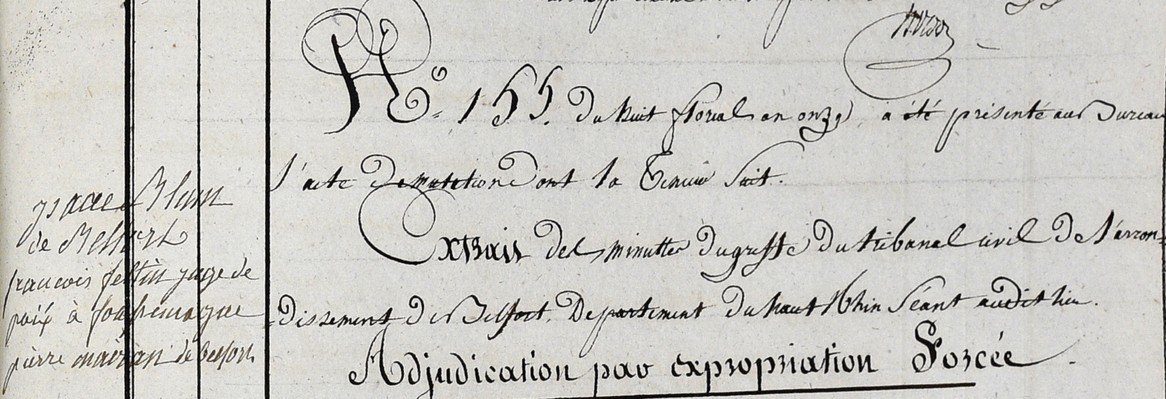 N.° 155. du huit floréal an onze, a été présenté au Bureau
l'acte de mutation dont la Teneur suit.
Extrait des minuttes du greffe du tribunal civil de l'arron-
dissement de Belfort, Departement du haut Rhin Séant audit lieu.
Adjudication par expropriation Forcée.
Blum
de Belfort
francois feltin juge de
paix à foussemagne
pierre de belfort